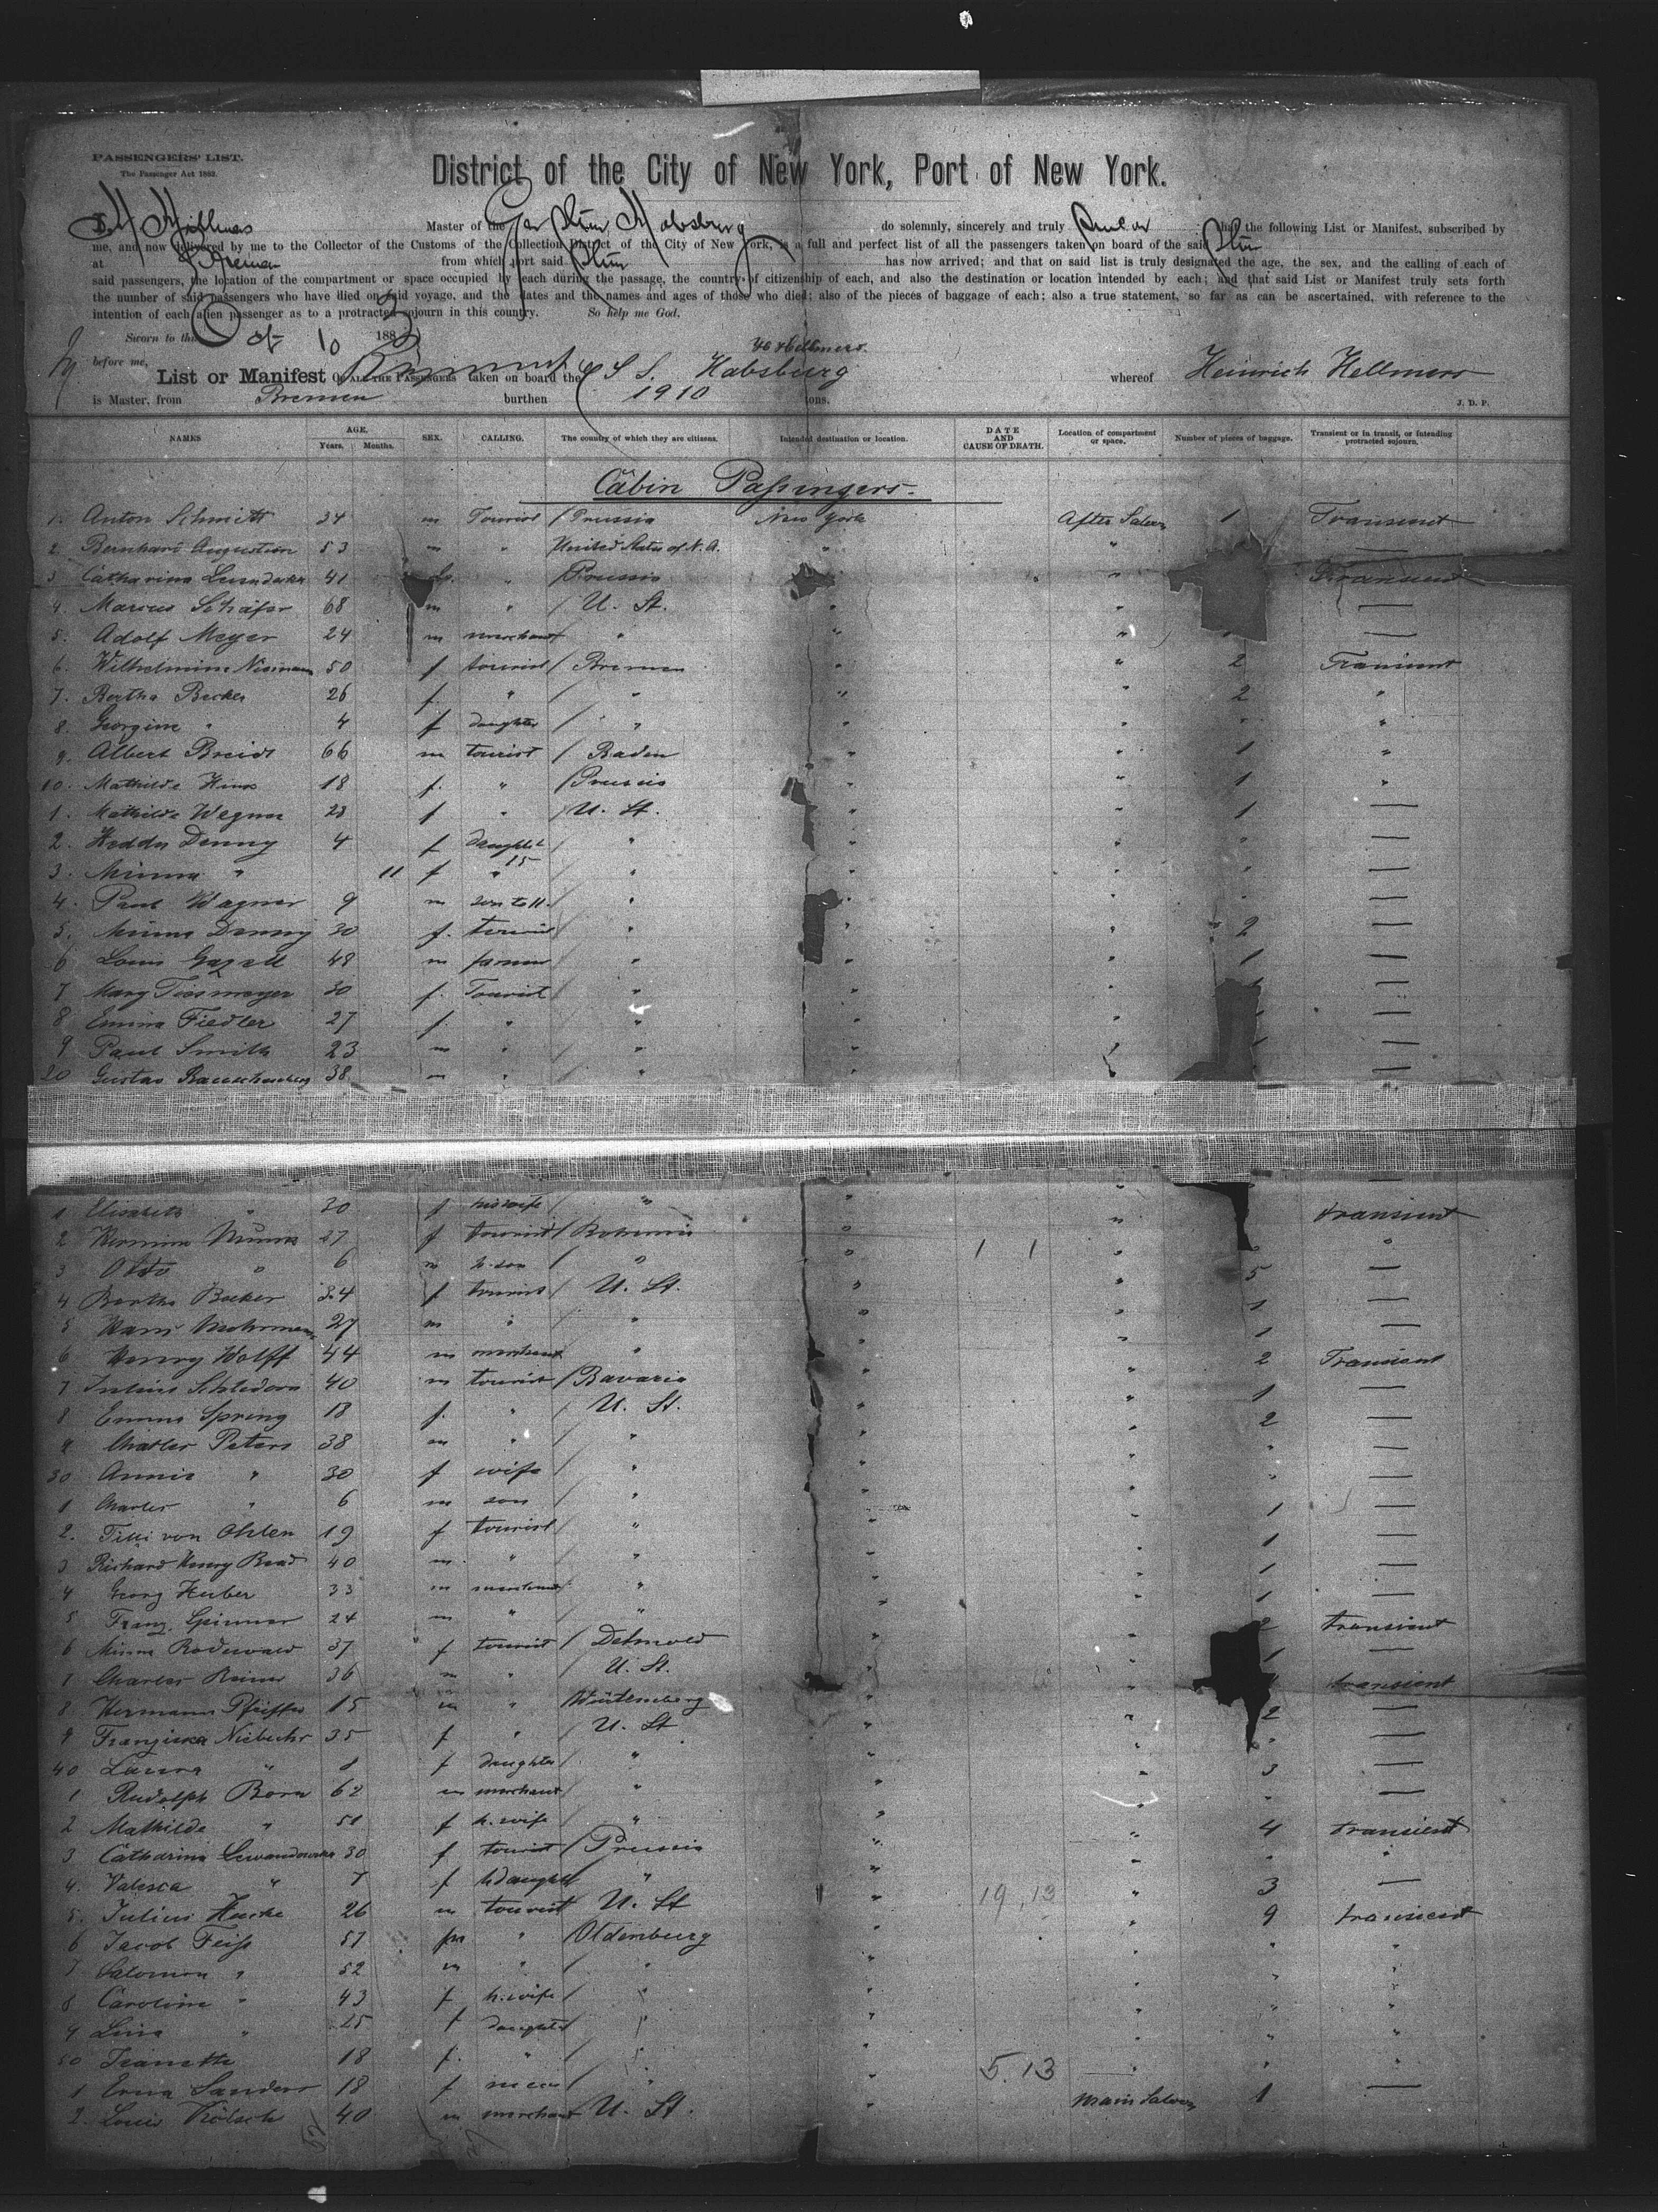 PASSENGERS' LIST.
The Passenger Act 1882.
District of the City of New York, Port of New York.
I, H Hellmers Master of the Ger Stm Habsburg do solemnly, sincerely and truly swear that the following List or Manifest, subscribed by
me, and now delivered by me to the Collector of the Customs of the Collection District of the City of New York, is a full and perfect list of all the passengers taken on board of the said Stm
at Bremen from which port said Stm has now arrived; and that on said list is truly designated the age, the sex, and the calling of each of
said passengers, the location of the compartment or space occupied by each during the passage, the country of citizenship of each, and also the destination or location intended by each; and that said List or Manifest truly sets forth
the number of said passengers who have died on said voyage, and the dates and the names and ages of those who died; also of the pieces of baggage of each; also a true statement, so far as can be ascertained, with reference to the
intention of each alien passenger as to a protracted sojourn in this country. So help me God,
Sworn to this Oct 10 188
before me, Hellmers
List or Manifest OF ALL THE PASSENGERS taken on board the S S. Habsburg whereof Heinrich Hellmers
is Master, from Bremen burthen 1910 tons. J. D. P.
NAMES AGE. Years. Months. SEX. CALLING. The country of which they are citizens. Intended destination or location. DATE AND CAUSE OF DEATH. Location of compartment or space. Number of pieces of baggage. Transient or in transit, or intending protracted sojourn.
Cabin Passengers.
1. Anton Schmitt 34 m Tourist / Prussia New York After Saloon 1 Transient
2 Bernhard Augustion 53 m " United States of N. A. " " —
3 Catharina 41 " / Prussia " " Transient
4. Marcus Schäfer 68 m " / U. St. " " —
5. Adolf Meyer 24 m merchant " " " —
6. Wilhelmine 50 f tourist / Bremen " " 2 Transient
7. Bertha Becker 26 f. " / " " " 2 "
8. Georgine " 4 f daughter / " " " " "
9. Albert Breidt 66 m tourist / Baden " " 1 "
10. Mathilde 18 f. " / Prussia " " 1 "
1. Mathilde Wegner 23 f " / U. St. " " 1 —
2. Hedda Denny 4 f daughter / " " " " —
3. Minna " 11 f " 15 / " " " " —
4. Paul Wagner 9 m son to 11. / " " " " —
5. Minna Denny 30 f. tourist / " " " 2 —
6 Louis Gazell 48 m farmer / " " " 1 —
7 Mary Tiesmeyer 30 f. Tourist / " " " —
8 Emma Fiedler 27 f. " / " " " —
9 Paul Smith 23 m " / " " " —
20 Gustav Rauschenberg 38 m " / " " " —
1 Elisabeth " 30 f his wife / " " " transient
2 Hermine 27 f tourist / Bohemia " 1 1 " "
3 Otto " 6 m h. son / " " " 5 —
4 Bertha Becker 34 f tourist / U. St. " " 1 —
5 Hans 27 m " / " " " 1 —
6 Henry Wolff 44 m merchant " " " 2 Transient
7 Julius 40 m tourist / Bavaria " " 1 —
8 Emma Spring 18 f. " / U. St. " " 2 —
9 Charles Peters 38 m " / " " " " —
30 Annie " 30 f wife / " " " " —
1 Charles " 6 m son / " " " 1 —
2. Tilli von Ohlen 19 f tourist / " " " 1 —
3 Richard Henry 40 m. " / " " " 1 —
4 Georg Huber 33 m merchant / " " " 1 —
5 Franz. 24 m " / " " " 2 transient
6 Minna Rodewald 37 f tourist / Detmold " " 1 —
7 Charles 36 m " / U. St. " " transient
8 Hermann Pfeiffer 15 m " Würtemberg " " 2 —
9 Franziska Niebuhr 35 f " / U. St " " " —
40 Laura " 8 f daughter / " " " 3 —
1 Rudolph Born 62 m merchant / " " " —
2 Mathilde " 51 f h. wife / " " " 4 transient
3 Catharina Lewandowska 30 f tourist / Prussia " " " "
4. Valesca " 7 f h daughter " " " 3 —
5. Julius 26 m tourist U. St " 19, 13 " 9 transient
6 Jacob Feiss 57 m " / Oldenburg " " " "
7 Salomon " 52 m " / " " " " "
8 Caroline " 43 f h. wife / " " " " "
9 Lina " 25 f daughter " " " " "
50 Jeanette 18 f. " / " " " " "
1 Erna Sanders 18 f niece / " " 5. 13
2. Louis Kölsch 40 m merchant U. St. " Main Saloon 1 —